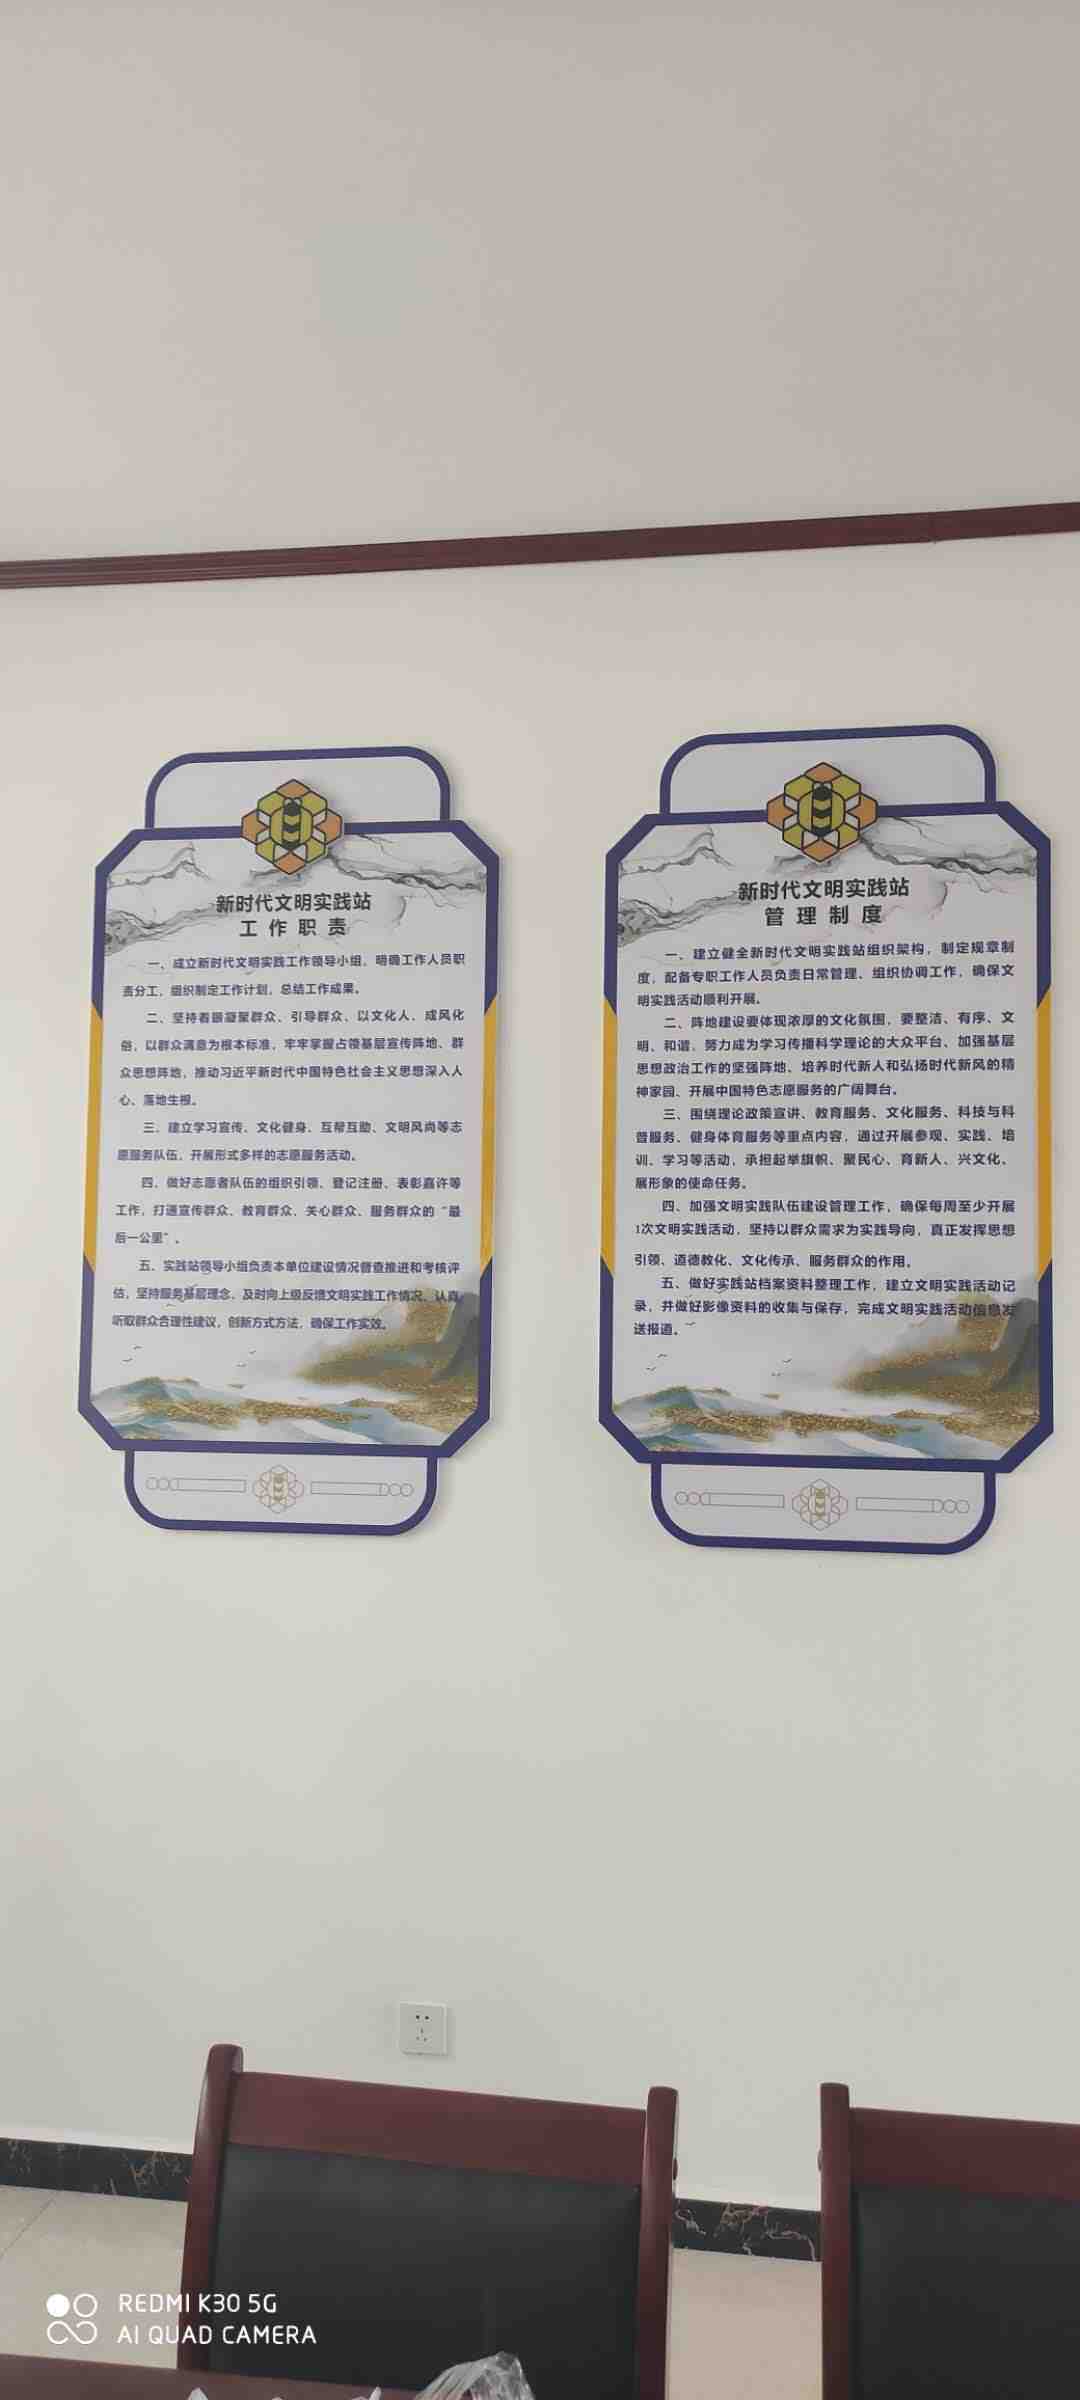 新时代文明实践站
工作职责
一、成立新时代文明实践工作领导小组，明确工作人员职
责分工，组织制定工作计划，总结工作成果。
二、坚持着眼凝聚群众、引导群众、以文化人、成风化
俗，以群众满意为根本标准，牢牢掌握占领基层宣传阵地、群
众思想阵地，推动习近平新时代中国特色社会主义思想深入人
心、落地生根。
三、建立学习宣传、文化健身、互帮互助、文明风尚等志
愿服务队伍，开展形式多样的志愿服务活动。
四、做好志愿者队伍的组织引领、登记注册、表彰嘉许等
工作，打通宣传群众、教育群众、关心群众、服务群众的“最
后一公里”。
五、实践站领导小组负责本单位建设情况督查推进和考核评
估，坚持服务基层理念，及时向上级反馈文明实践工作情况，认真
听取群众合理性建议，创新方式方法，确保工作实效。
新时代文明实践站
管理制度
一、建立健全新时代文明实践站组织架构，制定规章制
度，配备专职工作人员负责日常管理、组织协调工作，确保文
明实践活动顺利开展。
二、阵地建设要体现浓厚的文化氛围，要整洁、有序、文
明、和谐，努力成为学习传播科学理论的大众平台、加强基层
思想政治工作的坚强阵地、培养时代新人和弘扬时代新风的精
神家园、开展中国特色志愿服务的广阔舞台。
三、围绕理论政策宣讲、教育服务、文化服务、科技与科
普服务、健身体育服务等重点内容，通过开展参观、实践、培
训、学习等活动，承担起举旗帜、聚民心、育新人、兴文化、
展形象的使命任务。
四、加强文明实践队伍建设管理工作，确保每周至少开展
1次文明实践活动，坚持以群众需求为实践导向，真正发挥思想
引领、道德教化、文化传承、服务群众的作用。
五、做好实践站档案资料整理工作，建立文明实践活动记
录，并做好影像资料的收集与保存，完成文明实践活动信息发
送报道。
REDMI K30 5G
AI QUAD CAMERA